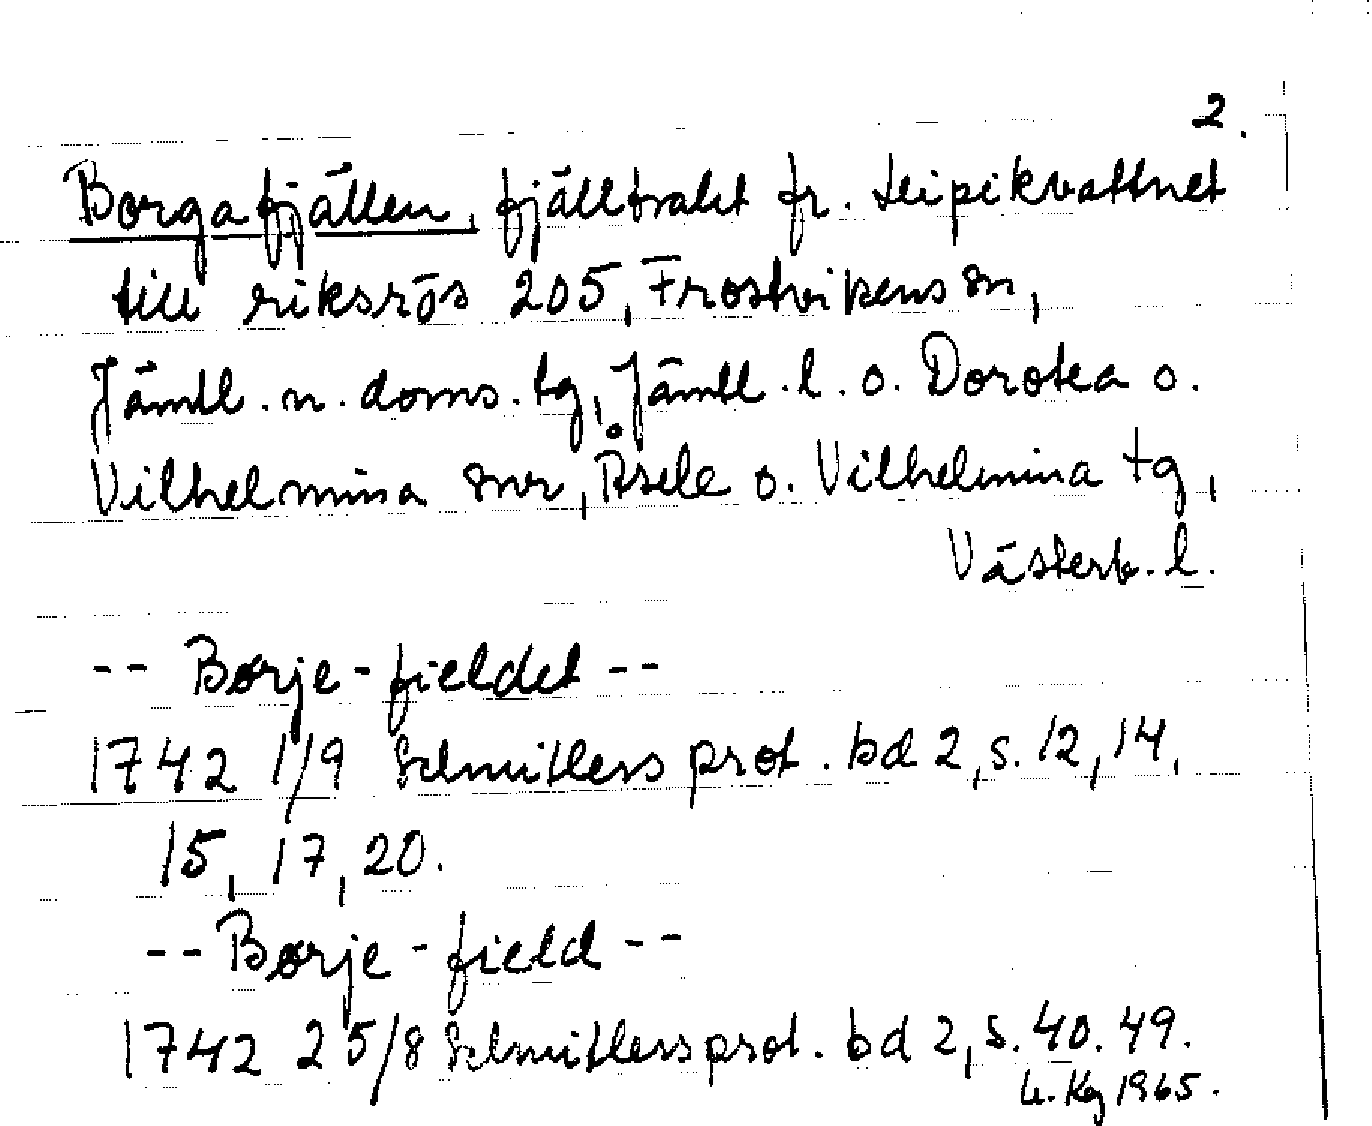 2.
Borgafjällen, fjälltrakt fr. Leipikvattnet
till riksrös 205, Frostvikens sn,
Jämtl. n. doms. tg, Jämtl. l. o. Dorotea o.
Vilhelmina snr, Åsele o. Vilhelmina tg,
Västerb. l.
-- Børje-fieldet --
1742 1/9 Schnitlers prot. bd 2, s. 12, 14,
15, 17, 20.
-- Børje-field --
1742 25/8 Schnitlers prot. bd 2, s. 40. 49.
Kg 1965.